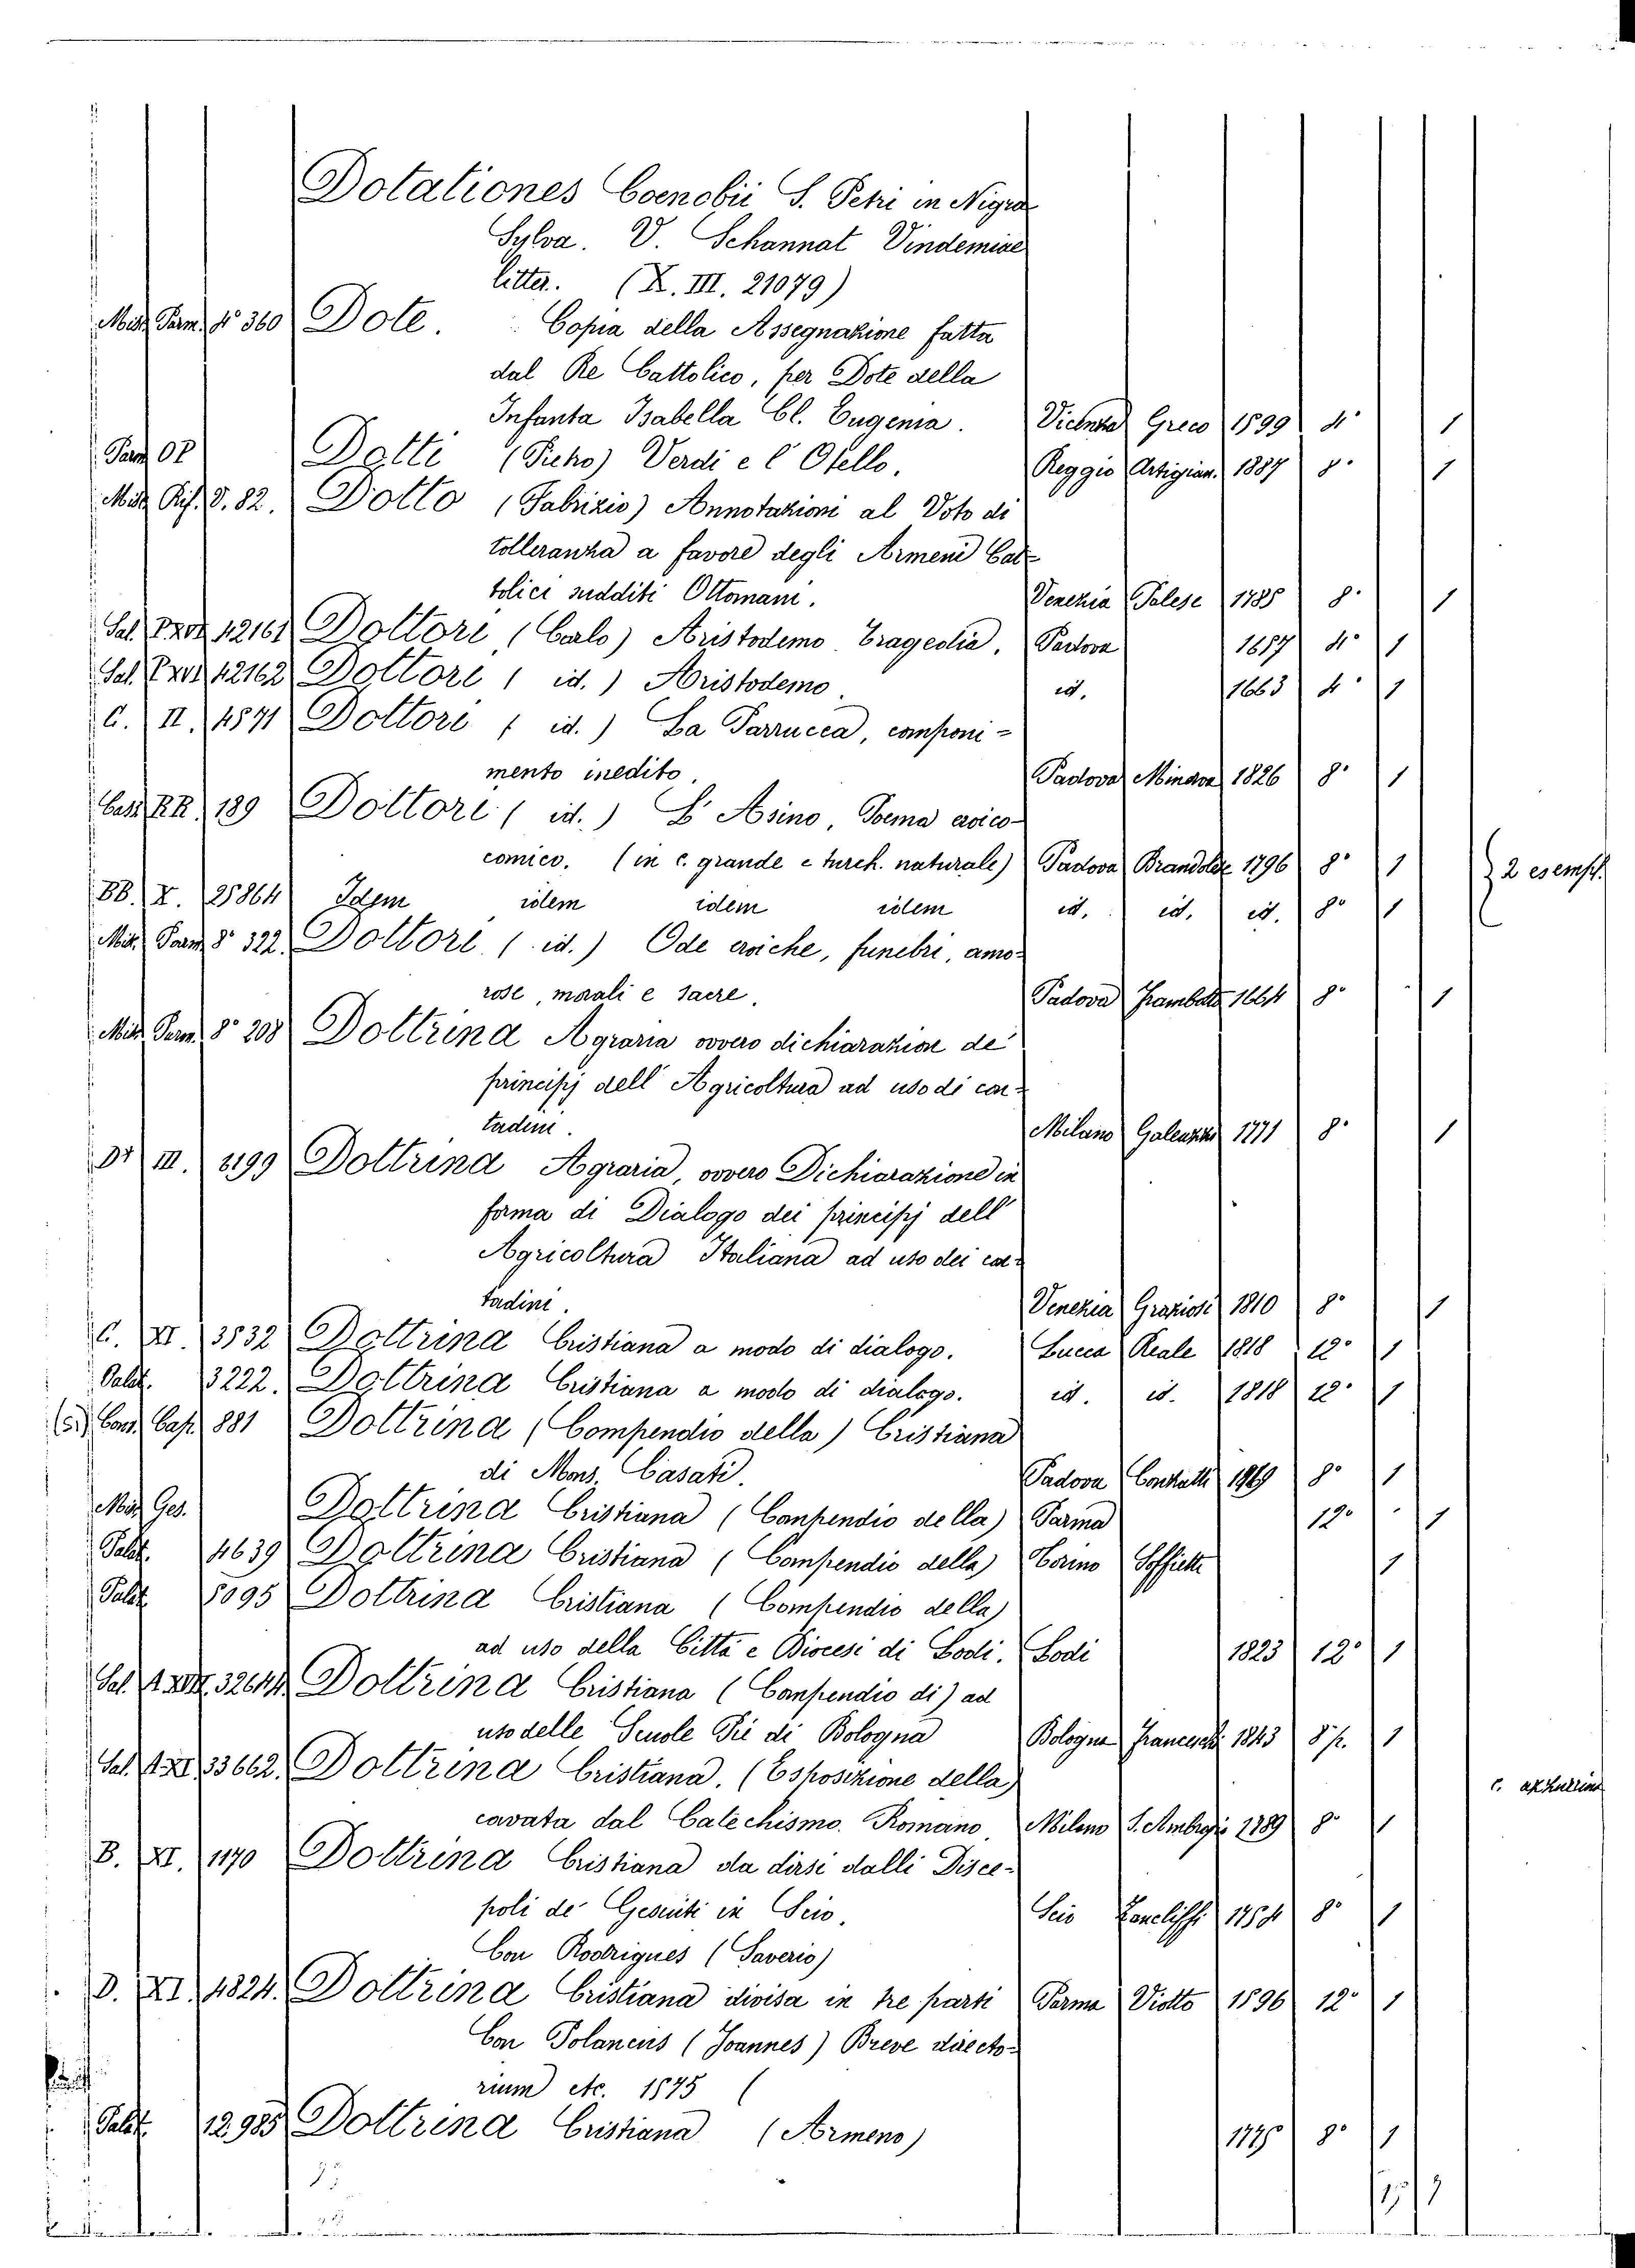 Dotationes Coenobii S. Petri in Nigra
Sylva. V. Schannat Vindemiae
litter. (X. III. 21079)
Misc. Parm. 4° 360 Dote. Copia della Assegnazione fatta
dal Re Cattolico, per Dote della
Infanta Isabella Cl. Eugenia. Vicenza Greco 1599 4° 1
Parm. Dotti (Picho) Verdi e l'Otello. Reggio Artigian. 1887 8° 1
Misc. Rif. 8. 82. Dotto (Fabrizio) Annotazioni al Voto di
tolleranza a favore degli Armeni Cat-
tolici sudditi Ottomani. Venezia Palese 1785 8° 1
Sal. 12161 Dottori (Carlo) Aristodemo Tragedia. Padova 1657 4° 1
Sal. 12162 Dottori (id.) Aristodemo. id. 1663 4° 1
C. II. 4571 Dottori (id.) La Parrucca, componi-
mento inedito. Padova Minerva 1826 8° 1
Cass. RR. 189 Dottori (id.) L'Asino, Poema eroico-
comico. (in c. grande e turch. naturale) Padova Brandolese 1796 8° 1 2 esempl.
BB. X. 25864 Idem idem idem idem id. id. id. 8° 1
Misc. Parm. 8° 322. Dottori (id.) Ode eroiche, funebri, amo-
rose, morali e sacre. Padova Frambotto 1664 8° 1
Misc. Parm. 8° 208 Dottrina Agraria ovvero dichiarazione de'
principj dell'Agricoltura ad uso di con-
tadini. Milano Galeazzi 1771 8° 1
III. 6199 Dottrina Agraria, ovvero Dichiarazione in
forma di Dialogo dei principj dell'
Agricoltura Italiana ad uso dei con-
tadini. Venezia Graziosi 1810 8° 1
C. XI. 3532 Dottrina Cristiana a modo di dialogo. Lucca Reale 1818 12° 1
Palat. 3222. Dottrina Cristiana a modo di dialogo. id. id. 1818 12° 1
Cons. Cap. 881 Dottrina (Compendio della) Cristiana
di Mons. Casati. Padova Conzatti 1769 8° 1
Misc. Ges. Dottrina Cristiana (Compendio della) Parma 12° 1
Palat. 4639 Dottrina Cristiana (Compendio della) Torino Soffietti 1
Palat. 8095 Dottrina Cristiana (Compendio della)
ad uso della Città e Diocesi di Lodi. Lodi 1823 12° 1
Sal. 32644 Dottrina Cristiana (Compendio di) ad
uso delle Scuole Pie di Bologna Bologna Franceschi 1843 8° p. 1
Sal. 33662. Dottrina Cristiana. (Esposizione della)
cavata dal Catechismo Romano. Milano S. Ambrogio 1789 8° 1
B. XI. 1170 Dottrina Cristiana da dirsi dalli Disce-
poli de' Gesuiti in Scio. Scio 1754 8° 1
Con Rodrigues (Saverio)
D. XI. 4824. Dottrina Cristiana divisa in tre parti Parma Viotto 1596 12° 1
Con Polancus (Joannes) Breve directo-
rium etc. 1575 (
Palat. 12985 Dottrina Cristiana (Armeno) 8° 1